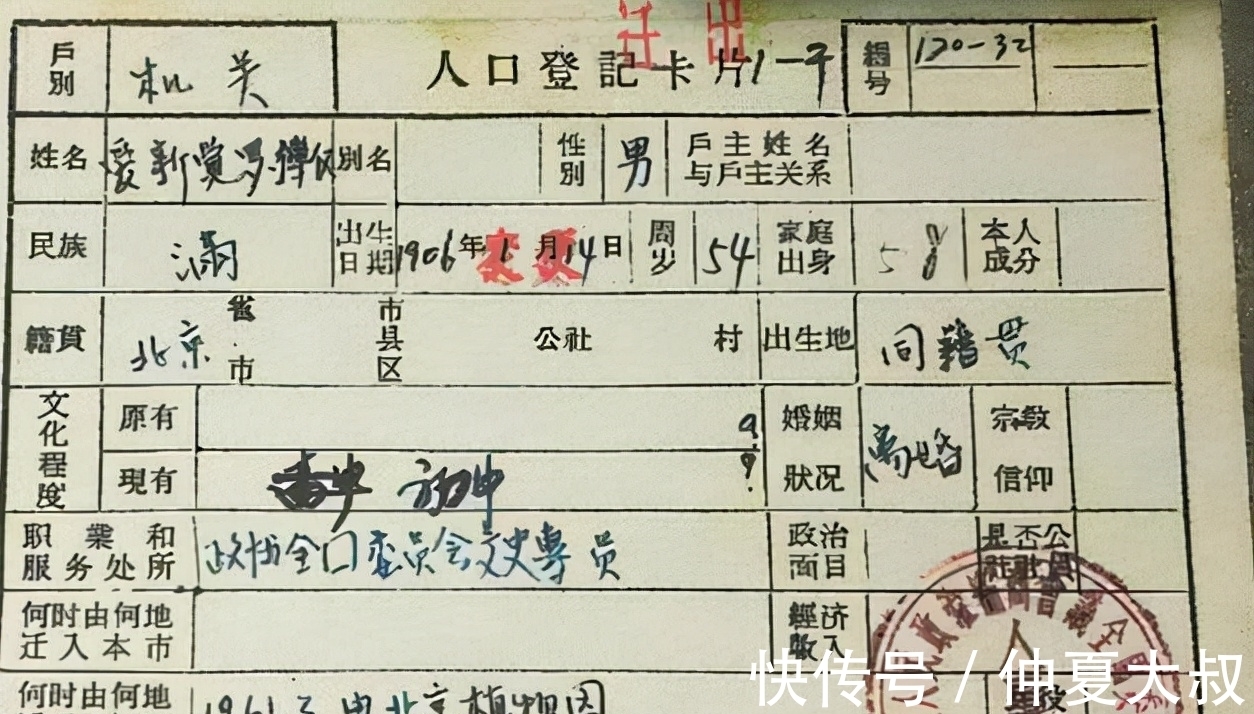 迁出
户别 机关 人口登記卡片1-7 編号 120-32
姓名 爱新觉罗 别名 性别 男 戶主姓名
与戶主关系
民族 满 出生日期 1906年1月14日 变更 周岁 54 家庭出身 58 本人成分
籍貫 北京 省市 市县区 公社 村 出生地 同籍贯
文化程度 原有
現有 初中
婚姻狀况 离婚 宗教信仰
职業和服务处所 政协全国委员会文史專员 政治面目 是否公社社員
何时由何地迁入本市 經济收入
何时由何地 1961 由北京植物园
快传号 / 仲夏大叔